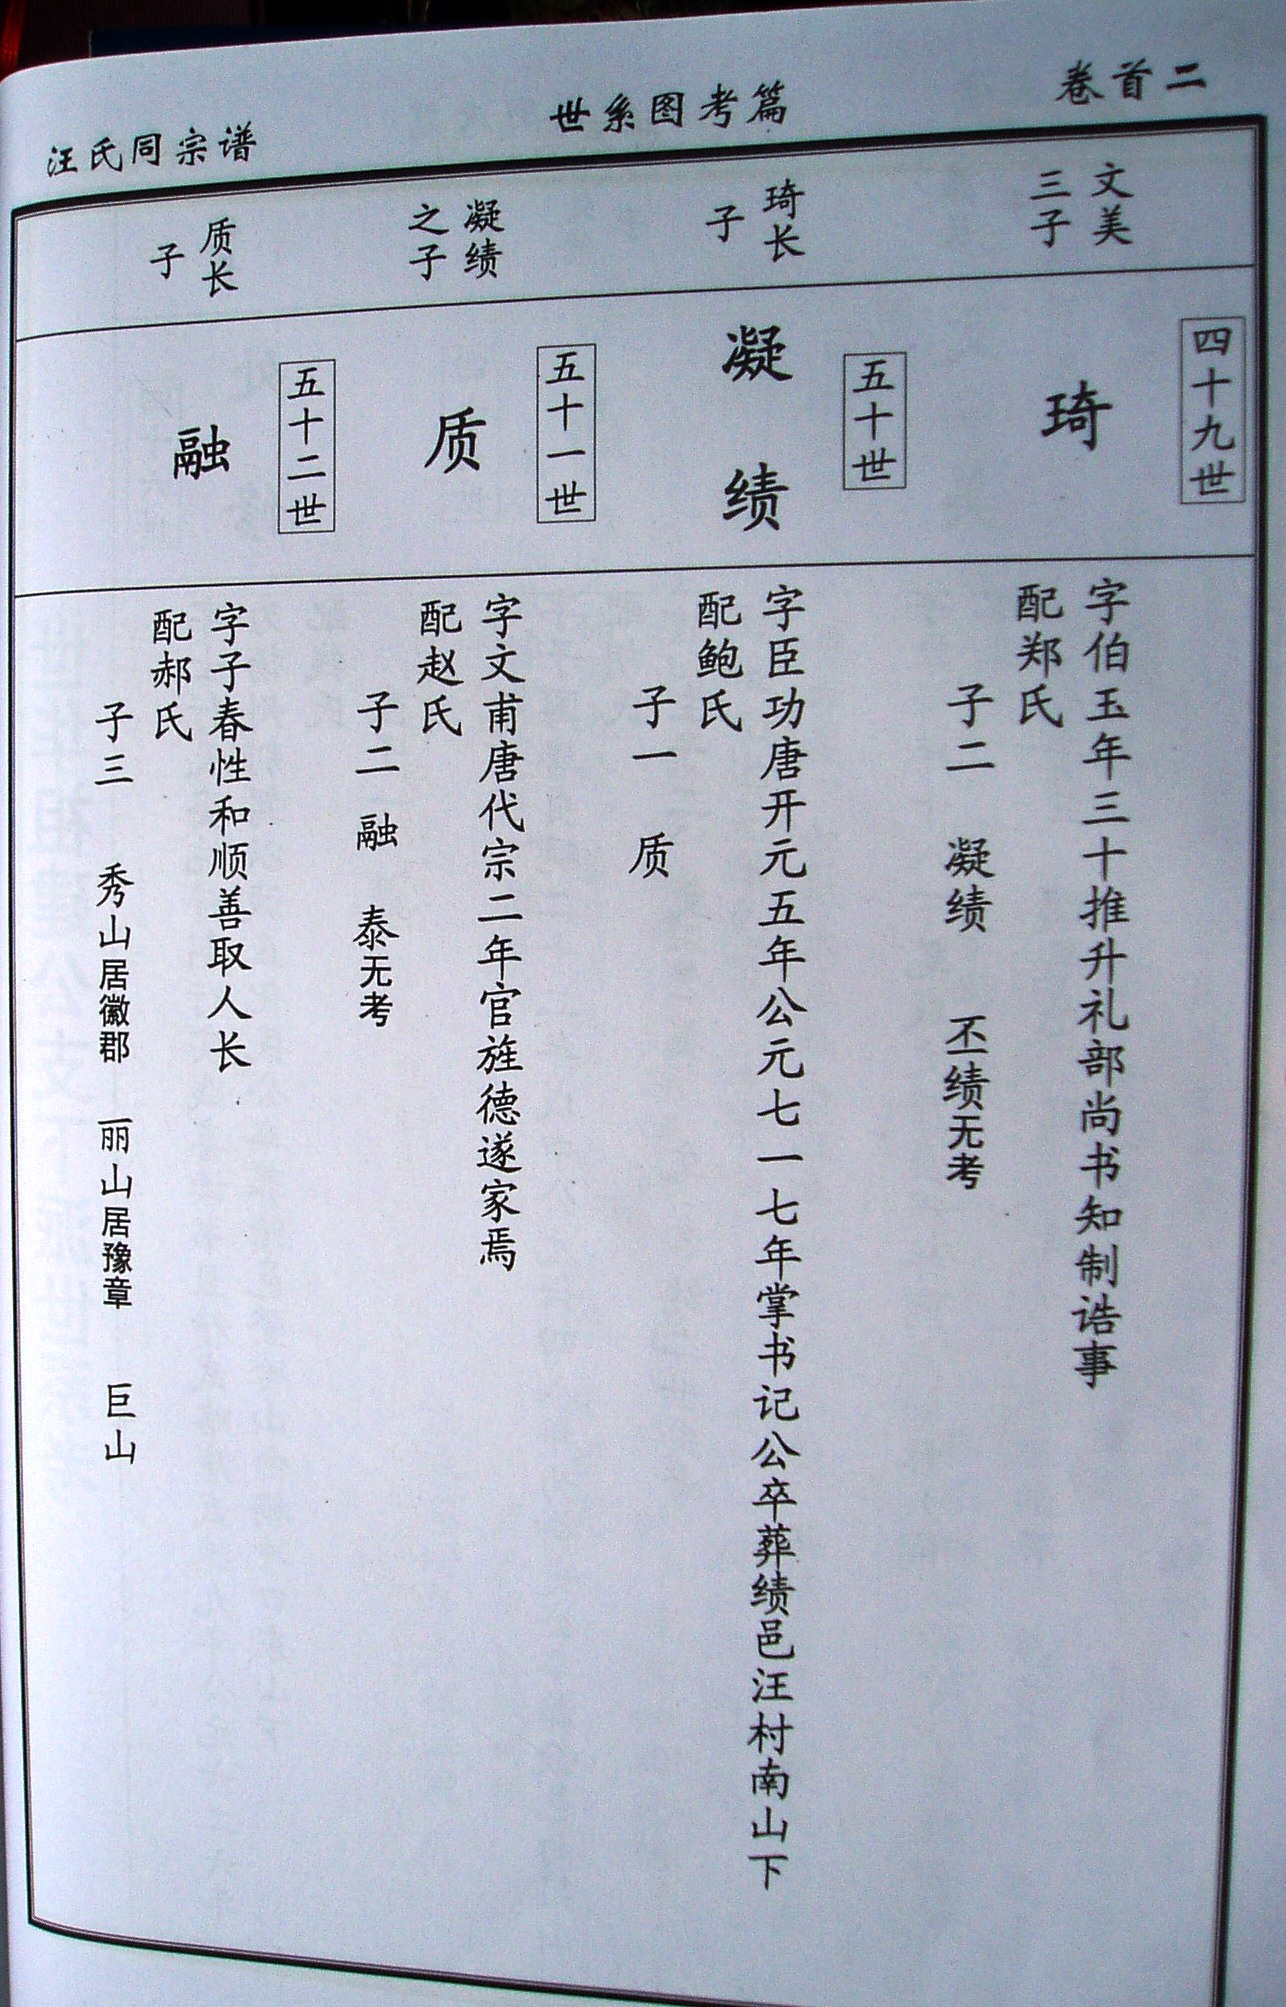 卷首二
世系图考篇
汪氏同宗谱
文美
三子
四十九世
琦
字伯玉年三十推升礼部尚书知制诰事
配郑氏
子二 凝绩 丕绩无考
琦长
子
五十世
凝绩
字臣功唐开元五年公元七一七年掌书记公卒葬绩邑汪村南山下
配鲍氏
子一 质
凝绩
之子
五十一世
质
字文甫唐代宗二年官旌德遂家焉
配赵氏
子二 融 泰无考
质长
子
五十二世
融
字子春性和顺善取人长
配郝氏
子三 秀山居徽郡 丽山居豫章 巨山